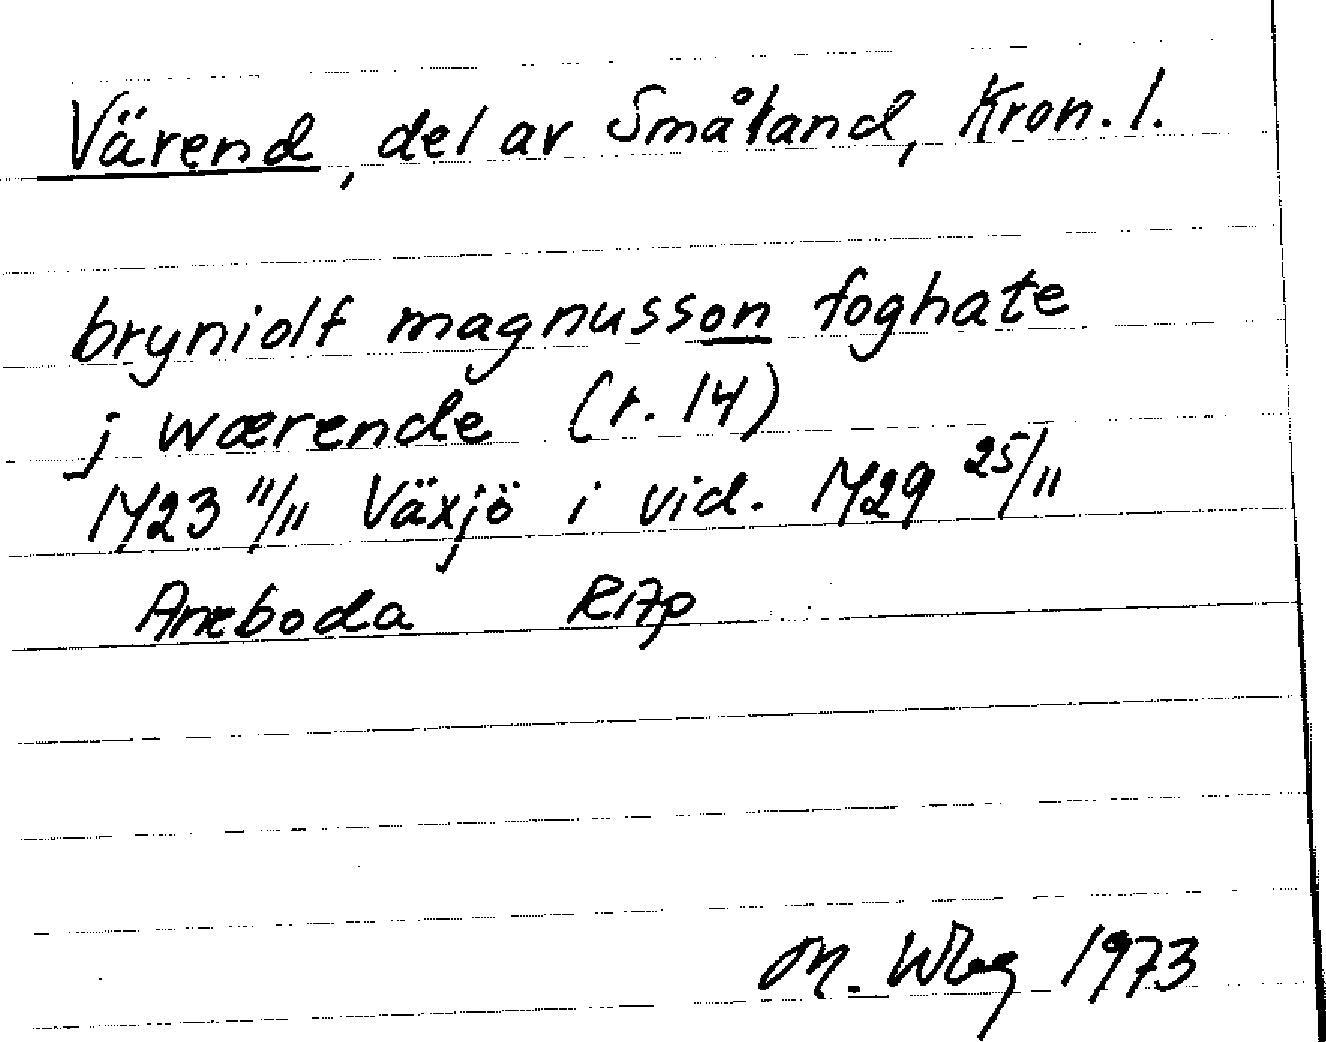 Värend, del av Småland, Kron. l.
bryniolf magnusson foghate
j wærende (r. 14)
1423 11/11 Växjö i vid. 1429 25/11
Aneboda RAp
M. Wbg 1973